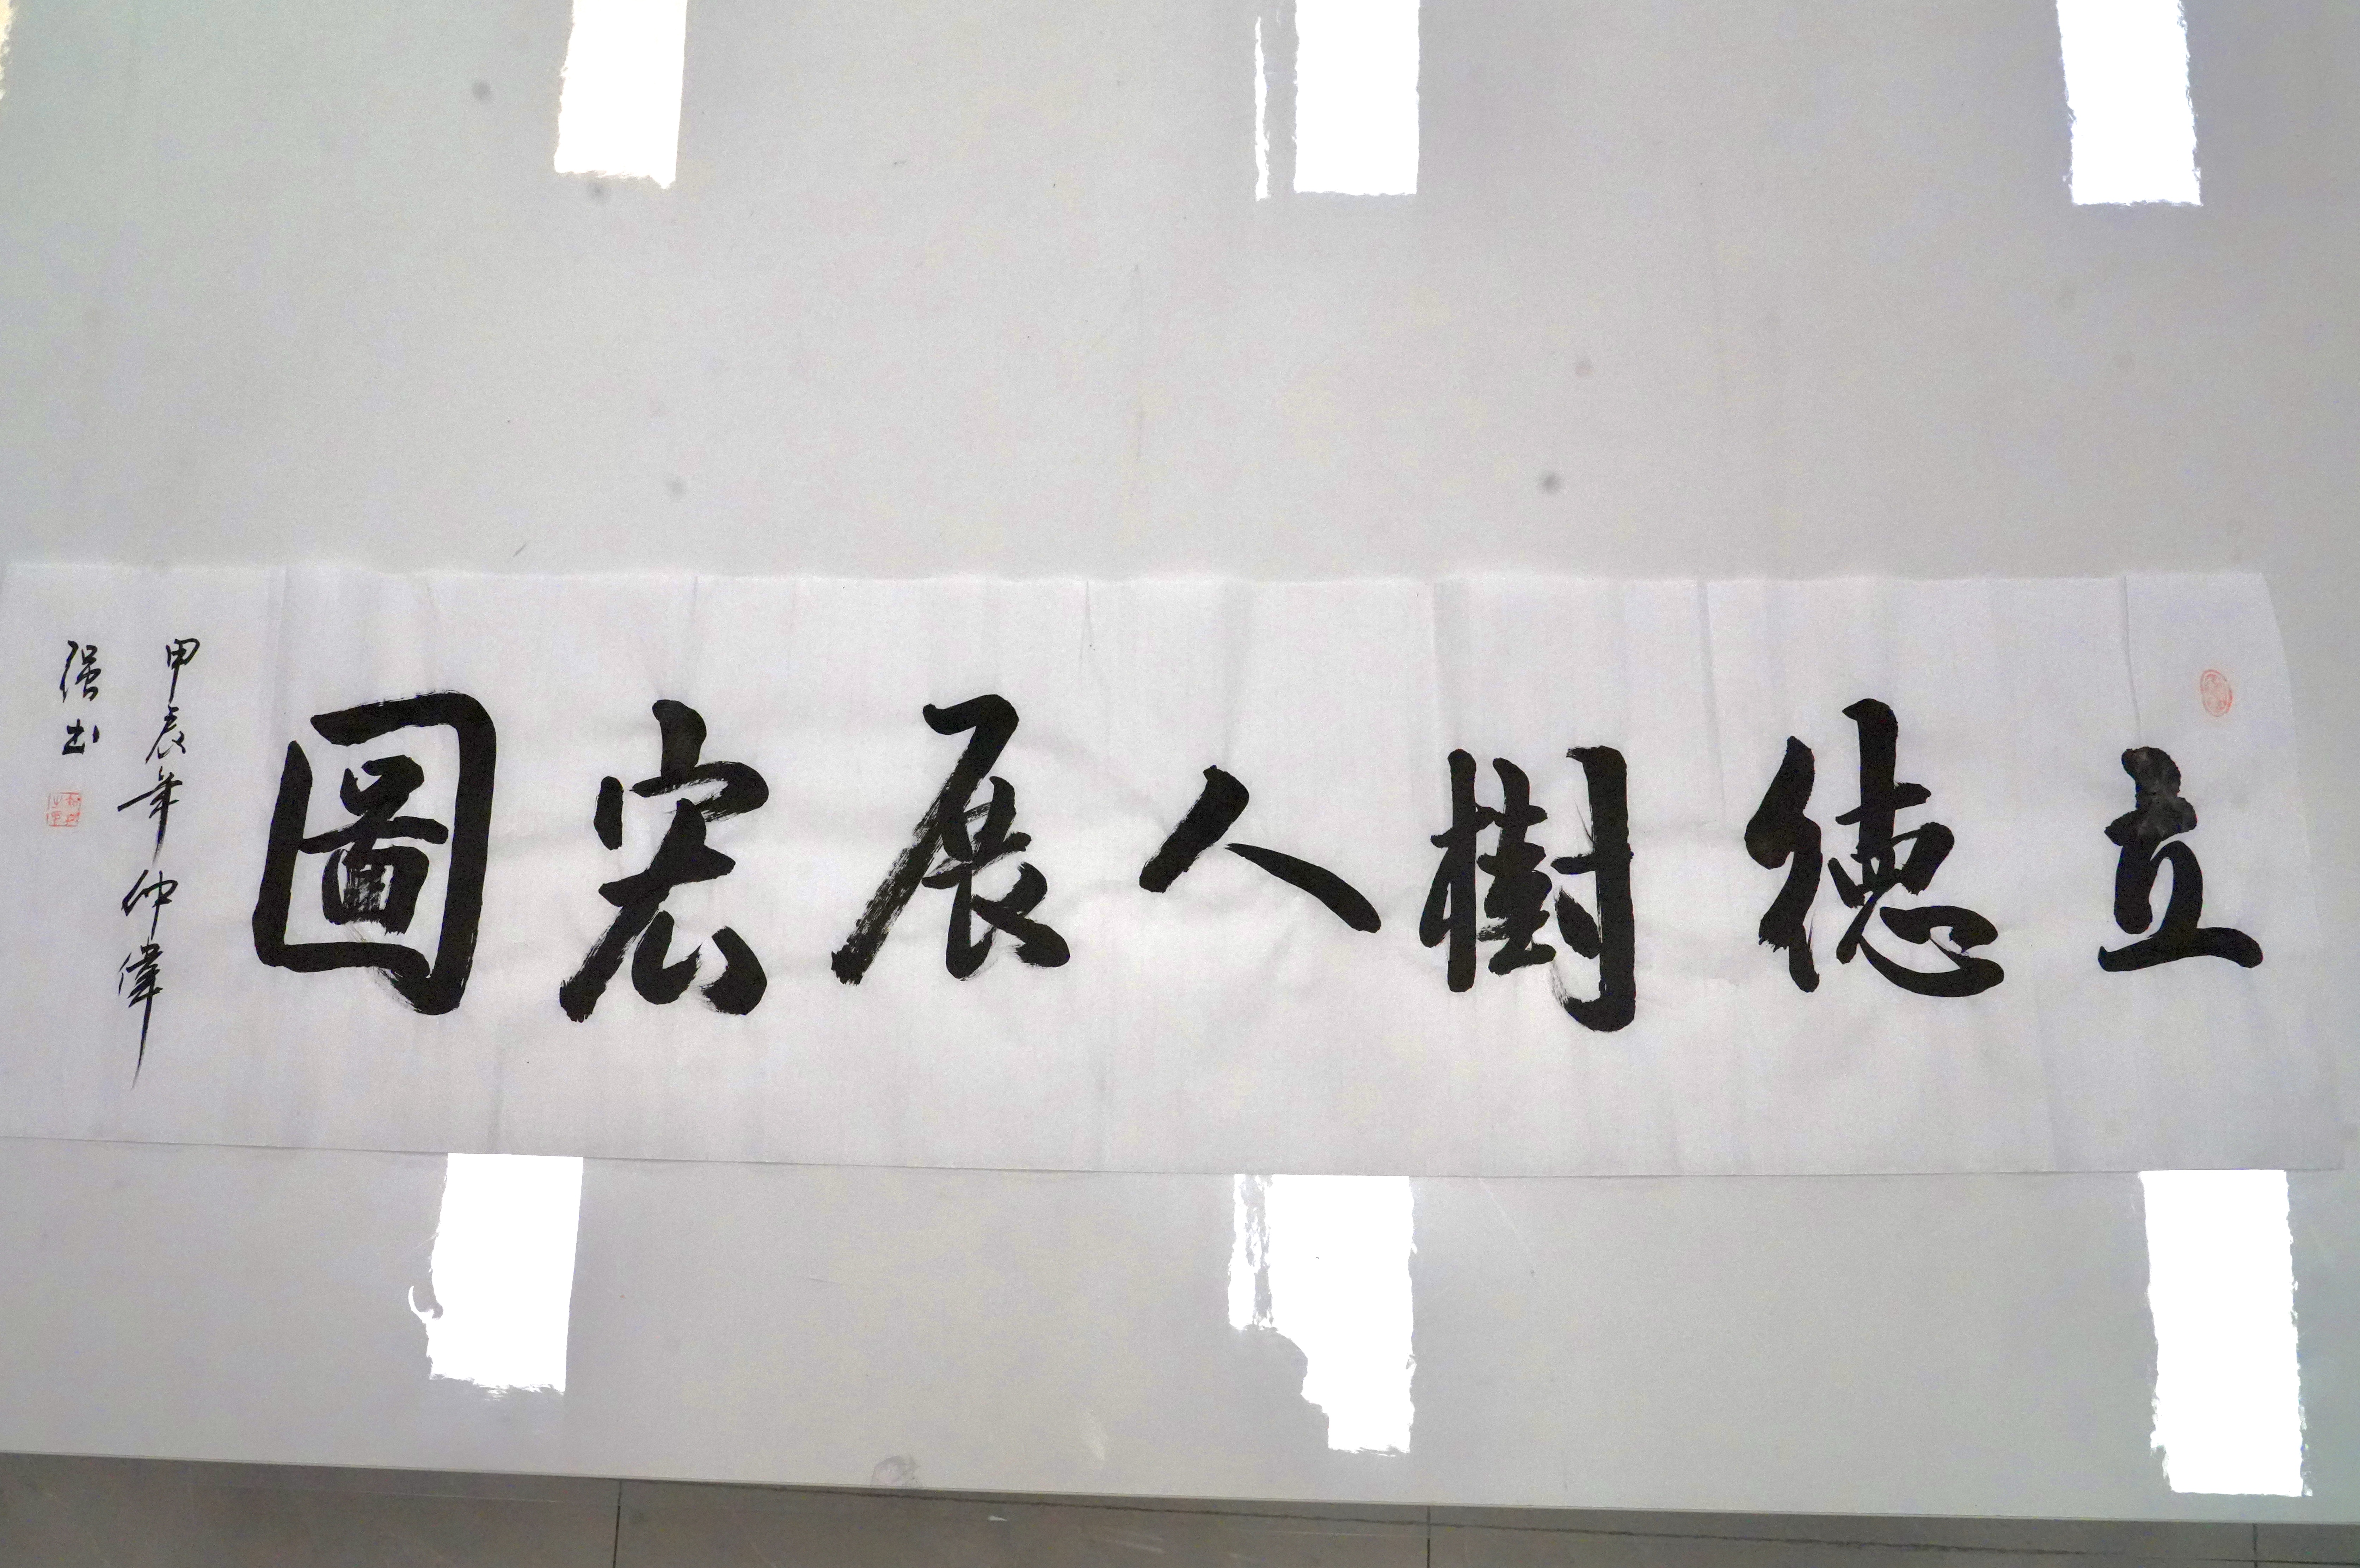 立德樹人展宏圖
甲辰年仲偉
强书